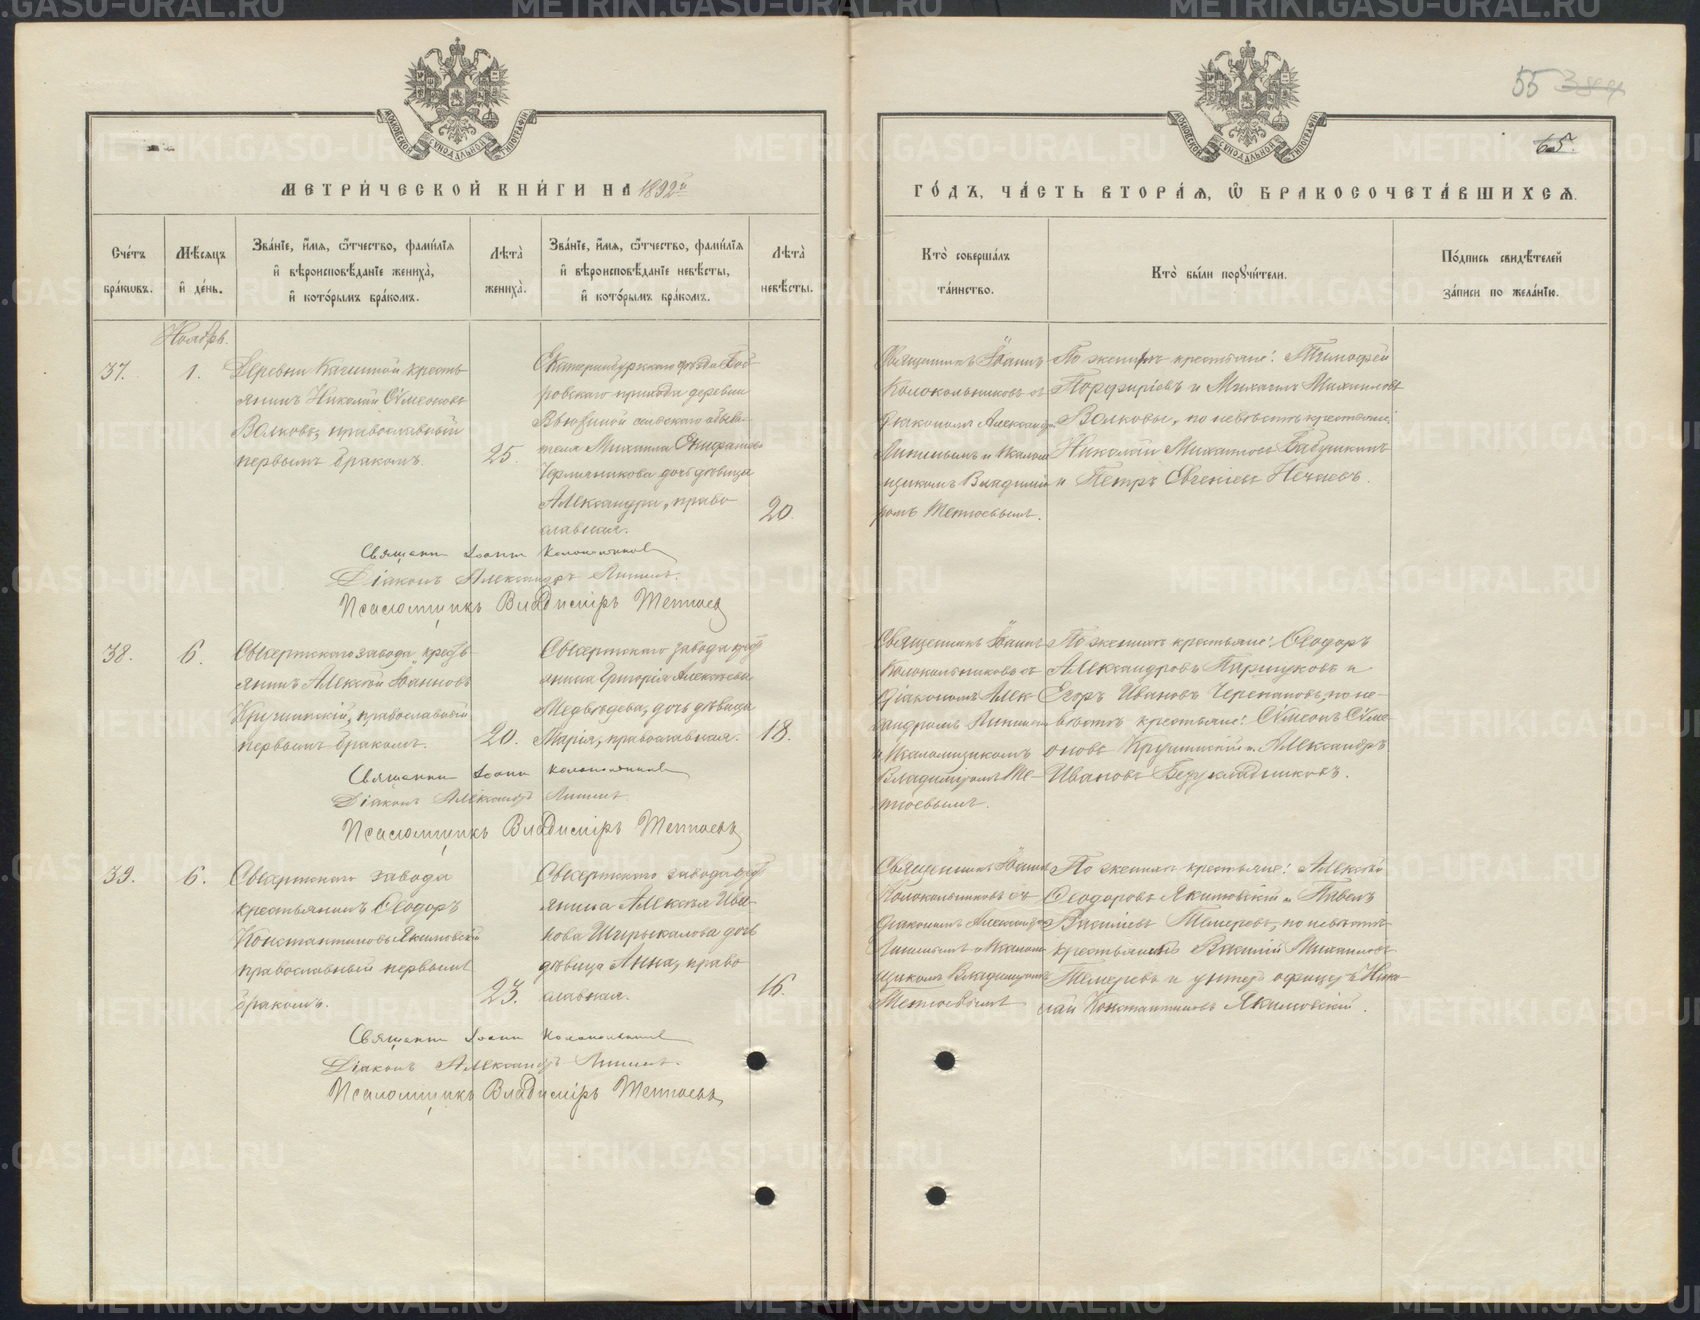 55
65.
МОСКОВСКОЙ СѴНОДАЛЬНОЙ ТИПОГРАФІИ
МОСКОВСКОЙ СѴНОДАЛЬНОЙ ТИПОГРАФІИ
МЕТРИ́ЧЕСКОЙ КНИ́ГИ НА 1892й
ГО́ДЪ, ЧА́СТЬ ВТОРА́Я, Ѡ҆ БРАКОСОЧЕТА́ВШИХСЯ.
Сче́тъ бра́кѡвъ.
Мѣ́сяцъ и҆ де́нь.
Зва́нїе, и҆́мя, ѻ҆́тчество, фами́лїя и҆ вѣроисповѣ́данїе жениха̀, и҆ кото́рымъ бра́комъ.
Лѣта̀ жениха̀.
Зва́нїе, и҆́мя, ѻ҆́тчество, фами́лїя и҆ вѣроисповѣ́данїе невѣ́сты, и҆ кото́рымъ бра́комъ.
Лѣта̀ невѣ́сты.
Кто̀ соверша́лъ та́инство.
Кто̀ бы́ли порꙋчи́тели.
По́дпись свидѣ́телей за́писи по жела́нїю.
Ноябрь.
37.
1.
Деревни Кашиной кресть
янинъ Николай Сѵмеоновъ
Волковъ, православный
первымъ бракомъ.
25.
Екатеринбургскаго уѣзда Боб-
ровскаго прихода деревни
Вьюхиной сельскаго обыва-
теля Михаила Епифанова
Чермянинова дочь дѣвица
Александра, право
славная.
20.
Священникъ Іоаннъ
Колокольниковъ съ
діакономъ Александр
Липинымъ и Псалом
щикомъ Владими
ромъ Тетюевымъ.
По женихѣ крестьяне: Тимофей
Порфирьевъ и Михаилъ Михаиловъ
Волковы, по невѣстѣ крестьяне:
Николай Михаиловъ Бабушкинъ
и Петръ Евгеніевъ Нечаевъ.
Священникъ Іоаннъ Колокольниковъ
Діаконъ Александръ Липинъ.
Псаломщикъ Владиміръ Тетюевъ
38.
6.
Сысертскаго завода крест-
янинъ Алексѣй Іоанновъ
Кручинскій, православный
первымъ бракомъ.
20.
Сысертскаго завода крест
янина Григорія Алексѣева
Медвѣдева, дочь дѣвица
Марія, православная.
18.
Священникъ Іоаннъ
Колокольниковъ съ
Діакономъ Алек-
андромъ Липинымъ
и Псаломщикомъ
Владиміромъ Те-
тюевымъ.
По женихѣ крестьяне: Ѳеодоръ
Александровъ Паршуковъ и
Егоръ Ивановъ Черепановъ, по не-
вѣстѣ крестьяне: Сѵмеонъ Сѵме
оновъ Кручинскій и Александръ
Ивановъ Безукладниковъ.
Священникъ Іоаннъ Колокольниковъ
Діаконъ Александръ Липинъ.
Псаломщикъ Владиміръ Тетюевъ
39.
6.
Сысертскаго завода
крестьянинъ Ѳеодоръ
Константиновъ Якимовскій
православный первымъ
бракомъ.
23.
Сысертскаго завода крест
янина Алексѣя Ива-
нова Шырыкалова дочь
дѣвица Анна, право
славная.
16.
Священникъ Іоаннъ
Колокольниковъ съ
діакономъ Александр
Липинымъ и Псалом
щикомъ Владиміромъ
Тетюевымъ
По женихѣ крестьяне: Алексѣй
Ѳеодоровъ Якимовскій и Павелъ
Васильевъ Темеревъ, по невѣстѣ
крестьянинъ Василій Михаиловъ
Темеревъ и унтеръ офицеръ Нико-
лай Константиновъ Якимовскій.
Священникъ Іоаннъ Колокольниковъ
Діаконъ Александръ Липинъ.
Псаломщикъ Владиміръ Тетюевъ
METRIKI.GASO-URAL.RU